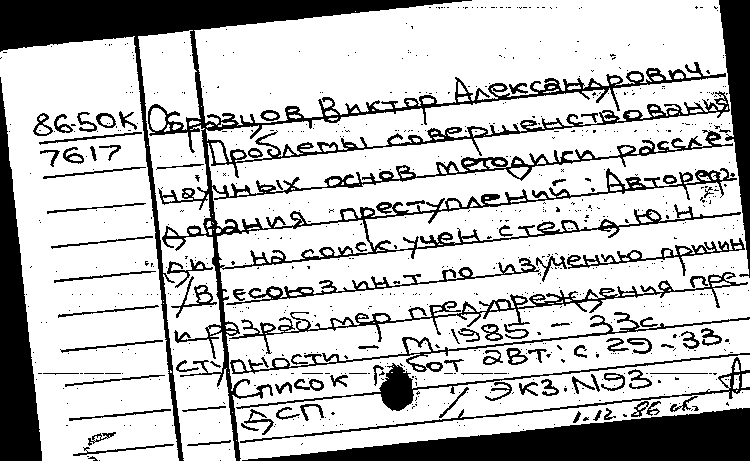 86-50К Образцов, Виктор Александрович.
7617 Проблемы совершенствования
научных основ методики рассле-
дования преступлений: Автореф.
дис. на соиск. учен. степ. д.ю.н.
/ Всесоюз. ин-т по изучению причин
и разраб. мер предупреждения пре-
ступности. - М., 1985. - 33с.
Список работ авт.: с. 29-33.
ДСП. // Экз. N93.
1.12.86